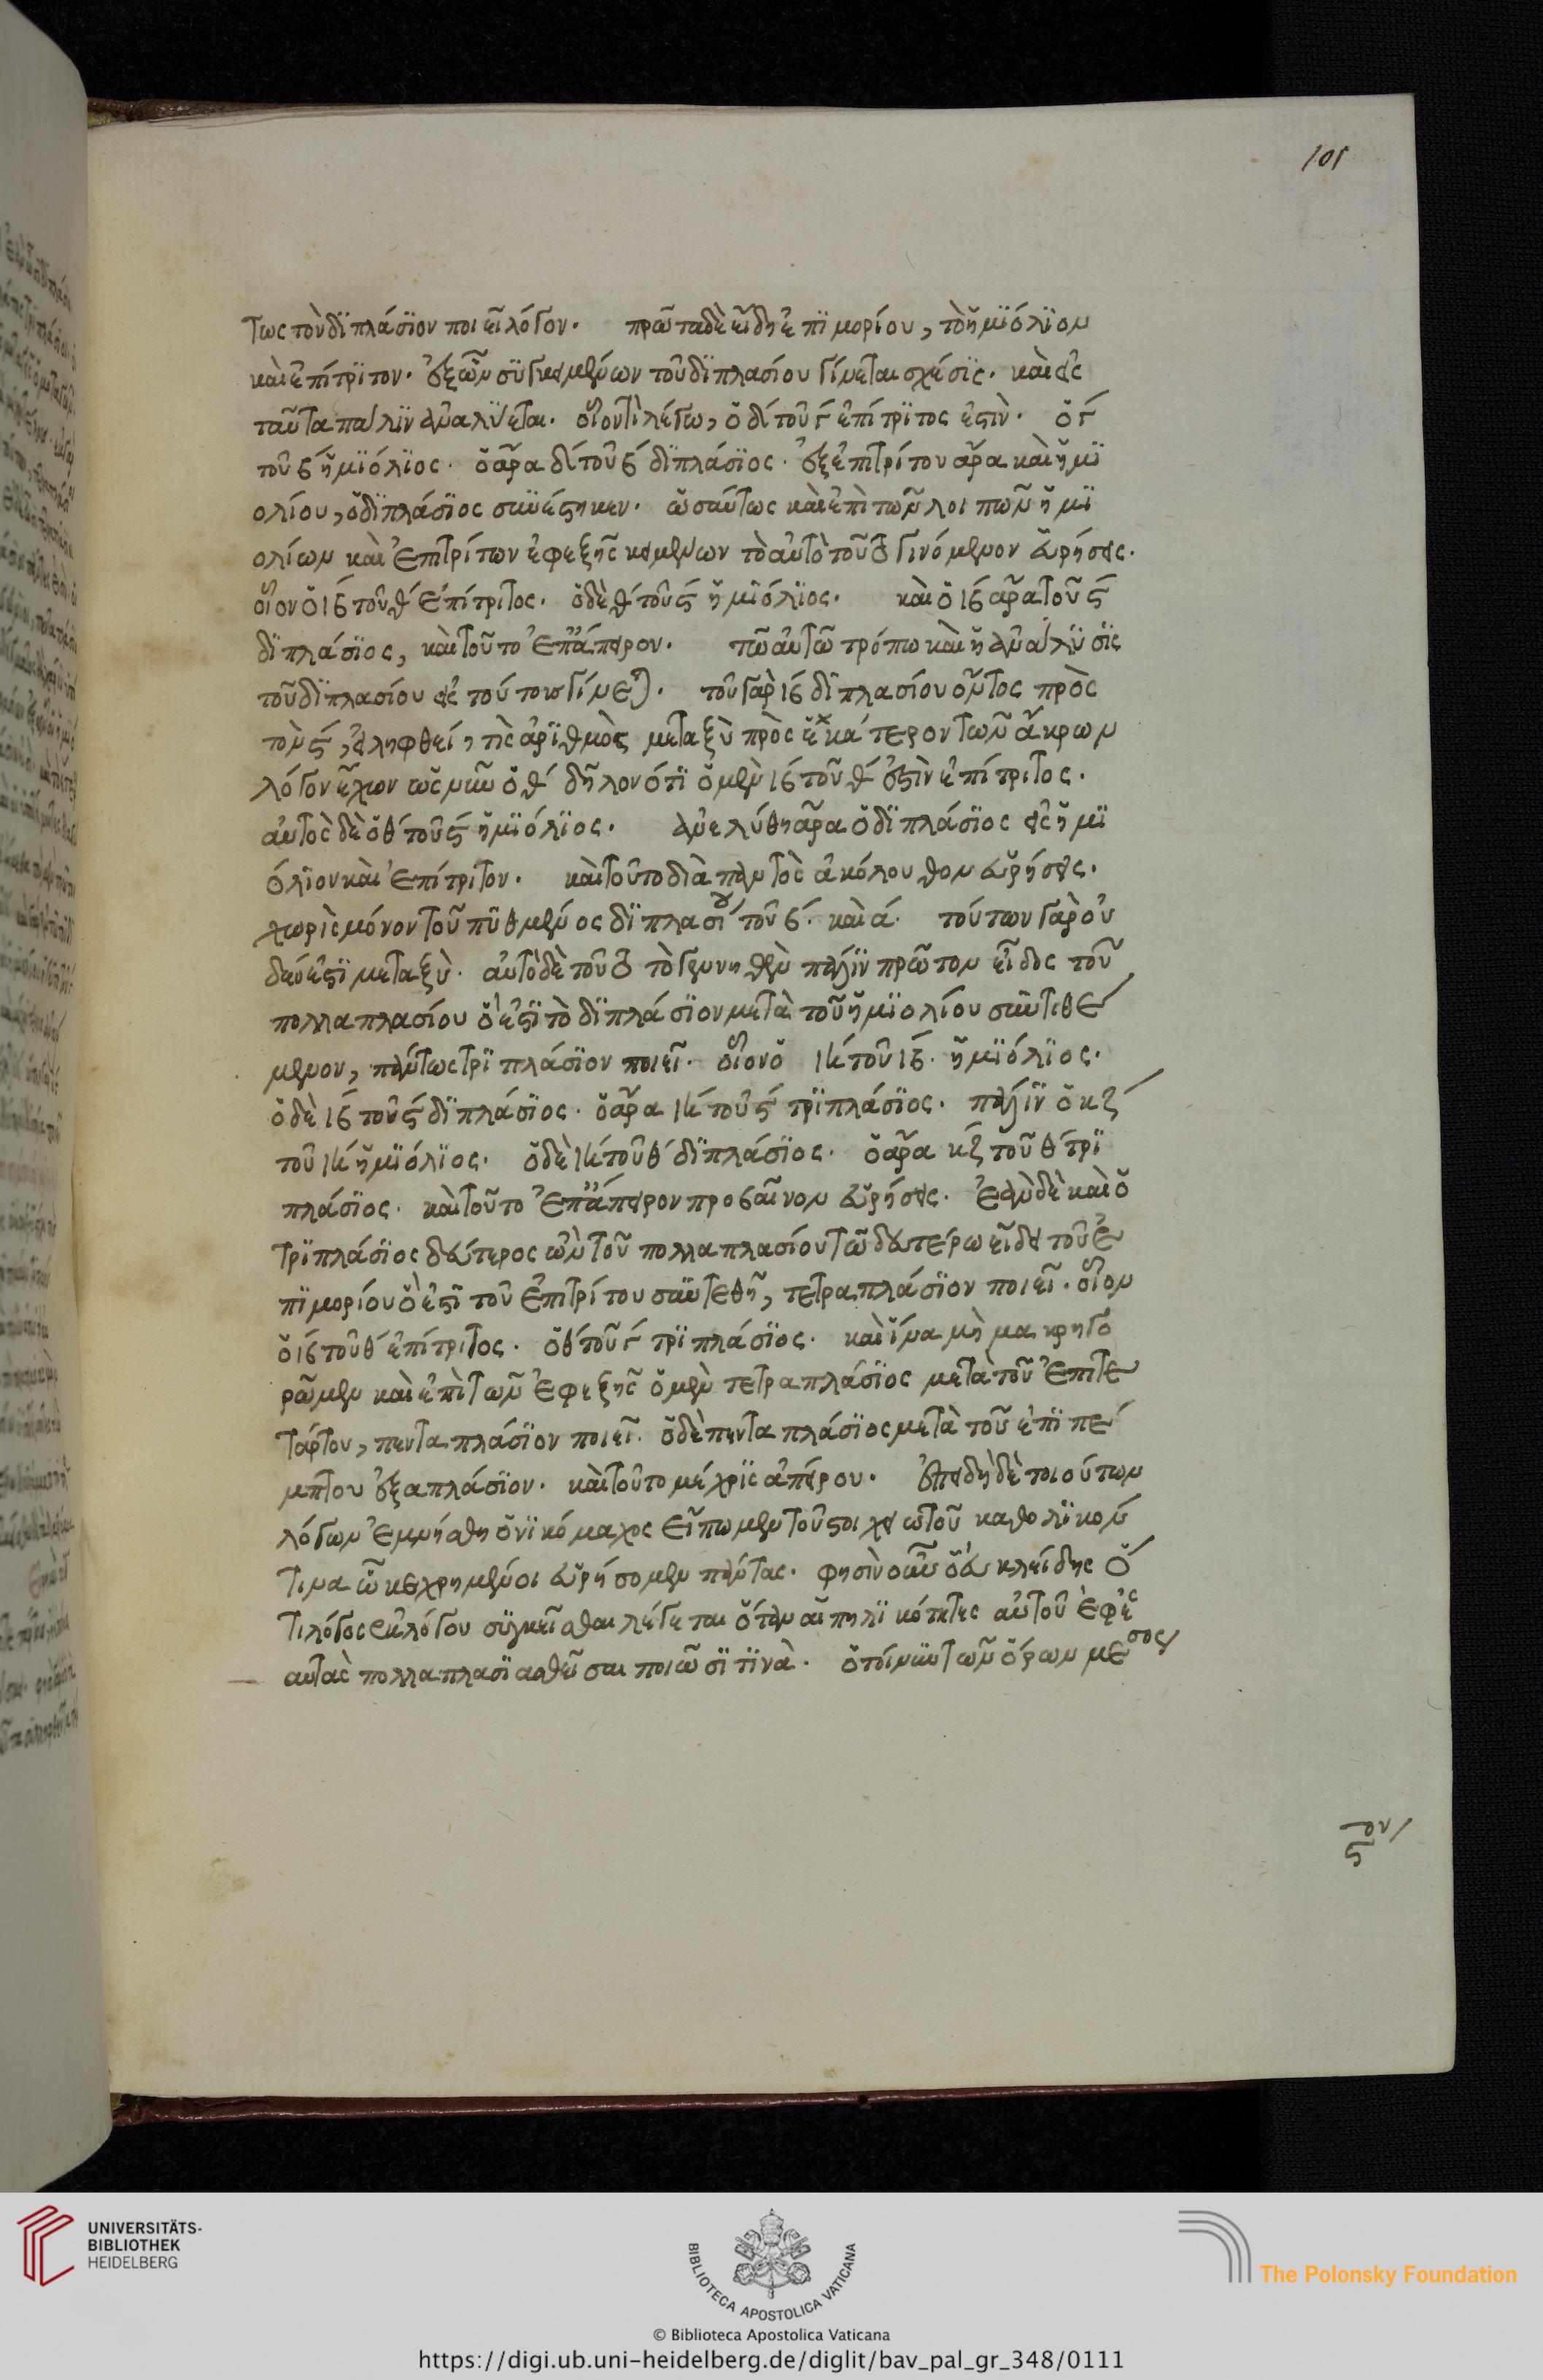 101
τως τὸν διπλάσιον ποιεῖ λόγον. πρῶτα δὲ εἴδη ἐπιμορίου, τὸ ἡμιόλιον
καὶ ἐπίτριτον. ἐξ ὧν συγκειμένων τοῦ διπλασίου γίνεται σχέσις. καὶ εἰς
ταῦτα πάλιν ἀναλύεται. οἷόν τι λέγω, ὁ δ' τοῦ γ' ἐπίτριτος ἐστίν. ὁ γ'
τοῦ β' ἡμιόλιος. ὁ ἄρα δ' τοῦ β' διπλάσιος. ἐξ ἐπιτρίτου ἄρα καὶ ἡμι
ολίου, ὁ διπλάσιος συνέστηκεν. ὡσαύτως καὶ ἐπὶ τῶν λοιπῶν ἡμι
ολίων καὶ ἐπιτρίτων ἐφεξῆς κειμένων τὸ αὐτὸ τοῦτο γινόμενον εὑρήσεις.
οἷον ὁ ιβ τοῦ θ' ἐπίτριτος. ὁ δὲ θ' τοῦ ϛ ἡμιόλιος. καὶ ὁ ιβ ἄρα τοῦ ϛ
διπλάσιος, καὶ τοῦτο ἐπ' ἄπειρον. τῶ αὐτῶ τρόπω καὶ ἡ ἀνάλυσις
τοῦ διπλασίου εἰς τούτους γίνεται. τοῦ γὰρ ιβ διπλασίου ὄντος πρὸς
τὸν ϛ, ἐλήφθει τις ἀριθμὸς μεταξὺ πρὸς ἑκάτερον τῶν ἄκρων
λόγον ἔχων ὡς νῦν ὁ θ' δῆλον ὅτι ὁ μὲν ιβ τοῦ θ' ἐστὶν ἐπίτριτος.
αὐτὸς δὲ ὁ θ' τοῦ ϛ ἡμιόλιος. ἀνελύθη ἄρα ὁ διπλάσιος εἰς ἡμι
όλιον καὶ ἐπίτριτον. καὶ τοῦτο διὰ παντὸς ἀκόλουθον εὑρήσεις.
χωρὶς μόνον τοῦ πυθμένος διπλασίου τοῦ β'. καὶ α'. τούτων γὰρ οὐ
δεὶς ἐστι μεταξύ. αὐτὸ δὲ τοῦτο τὸ γεννηθὲν πάλιν πρῶτον εἶδος τοῦ
πολλαπλασίου ὅ ἐστι τὸ διπλάσιον μετὰ τοῦ ἡμιολίου συντιθέ
μενον, πάντως τριπλάσιον ποιεῖ. οἷον ὁ ιη τοῦ ιβ. ἡμιόλιος.
ὁ δὲ ιβ τοῦ ϛ διπλάσιος. ὁ ἄρα ιη τοῦ ϛ τριπλάσιος. πάλιν ὁ κζ
τοῦ ιη ἡμιόλιος. ὁ δὲ ιη τοῦ θ' διπλάσιος. ὁ ἄρα κζ τοῦ θ' τρι
πλάσιος. καὶ τοῦτο ἐπ' ἄπειρον προβαῖνον εὑρήσεις. ἐὰν δὲ καὶ ὁ
τριπλάσιος δεύτερος ὢν τοῦ πολλαπλασίου τῶ δευτέρω εἴδει τοῦ ἐ
πιμορίου ὅ ἐστι τοῦ ἐπιτρίτου συντεθῆ, τετραπλάσιον ποιεῖ. οἷον
ὁ ιβ τοῦ θ' ἐπίτριτος. ὁ θ' τοῦ γ' τριπλάσιος. καὶ ἵνα μὴ μακρηγο
ρῶμεν καὶ ἐπὶ τῶν ἐφεξῆς ὁ μὲν τετραπλάσιος μετὰ τοῦ ἐπιτε
τάρτου, πενταπλάσιον ποιεῖ. ὁ δὲ πενταπλάσιος μετὰ τοῦ ἐπιπέ
μπτου ἑξαπλάσιον. καὶ τοῦτο μέχρις ἀπείρου. ἐπειδὴ δὲ τοιούτων
λόγων ἐμνήσθη ὁ νικόμαχος εἴπωμεν τοῦ στοιχειωτοῦ καθολικόν
τινα ὧ κεχρημένοι εὑρήσομεν πάντας. φησὶν οὖν ὁ εὐκλείδης ὅ
τι λόγος ἐκ λόγου συγκεῖσθαι λέγεται ὅταν αἱ πηλικότητες αὐτοῦ ἐφ' ἑ
αυτὰς πολλαπλασιασθεῖσαι ποιῶσι τινά. ὁ τοίνυν τῶν ὅρων μέσος
UNIVERSITÄTS-
BIBLIOTHEK
HEIDELBERG
BIBLIOTECA APOSTOLICA VATICANA
The Polonsky Foundation
© Biblioteca Apostolica Vaticana
https://digi.ub.uni-heidelberg.de/diglit/bav_pal_gr_348/0111